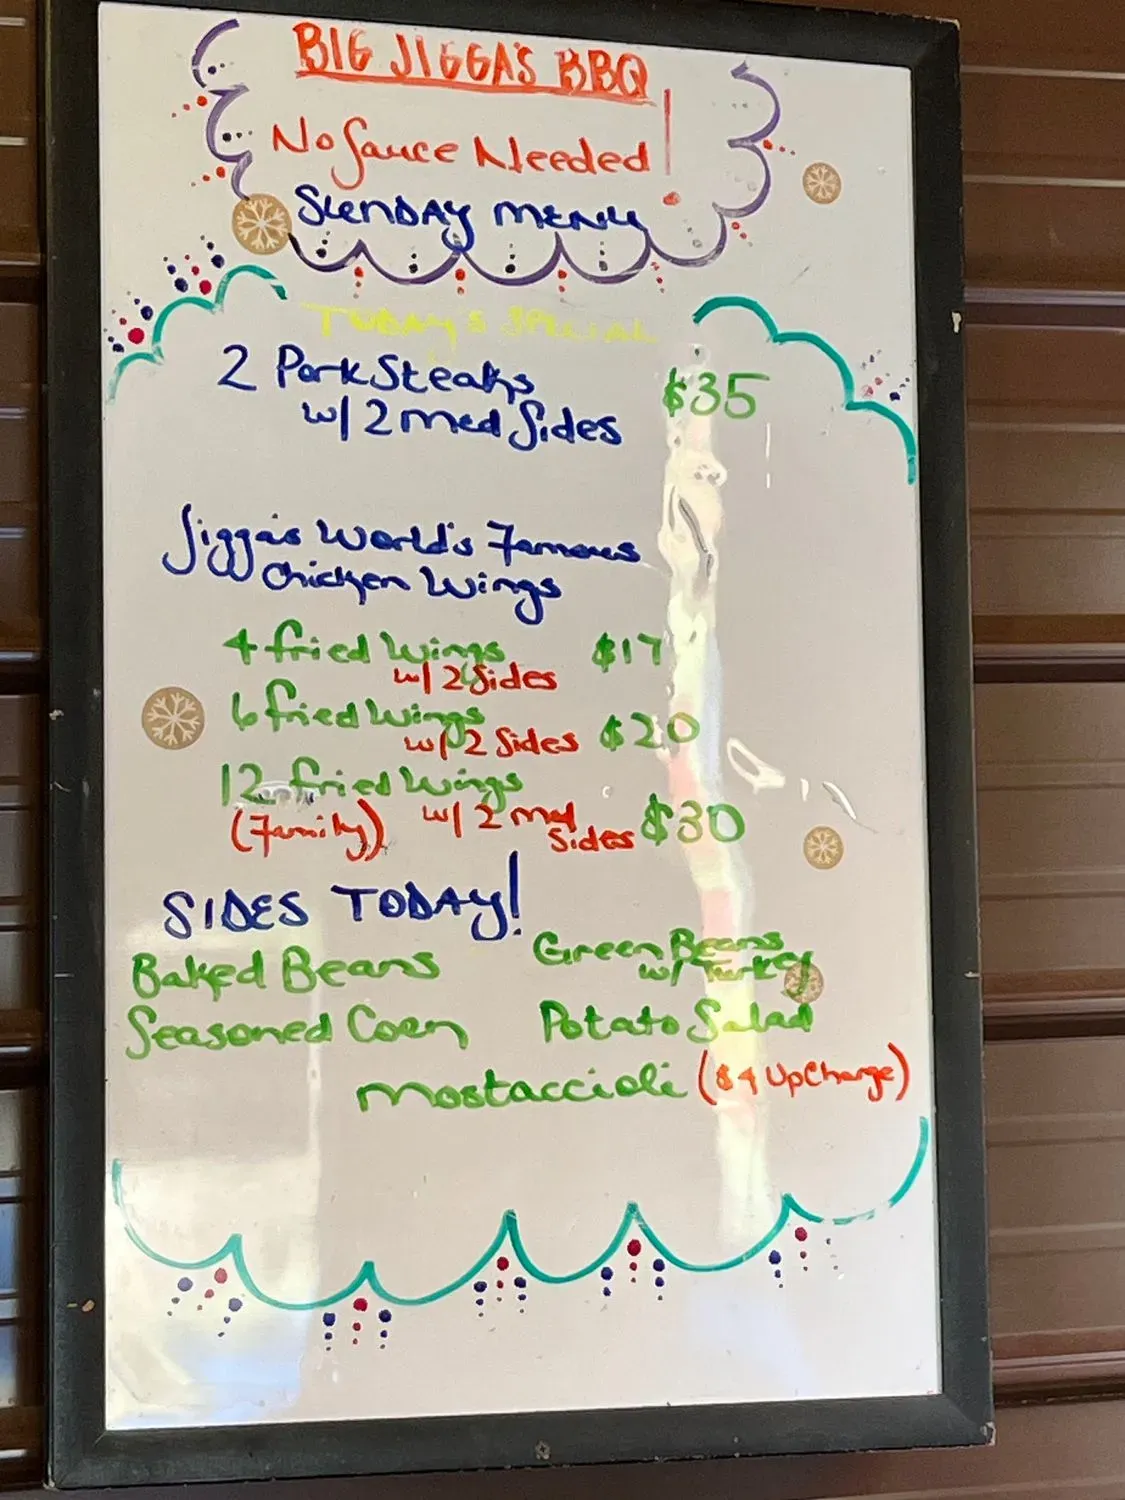 BIG JIGGA'S BBQ
No Sauce Needed!
SUNDAY MENU
TODAY'S SPECIAL
2 Pork Steaks $35
w/ 2 med Sides
Jigga's World's Famous
Chicken Wings
4 fried Wings $17
w/ 2 Sides
6 fried Wings $20
w/ 2 Sides
12 fried Wings
(Family) w/ 2 med
Sides $30
SIDES TODAY!
Baked Beans Green Beans
w/ Turkey
Seasoned Corn Potato Salad
Mostaccioli ($4 UpCharge)